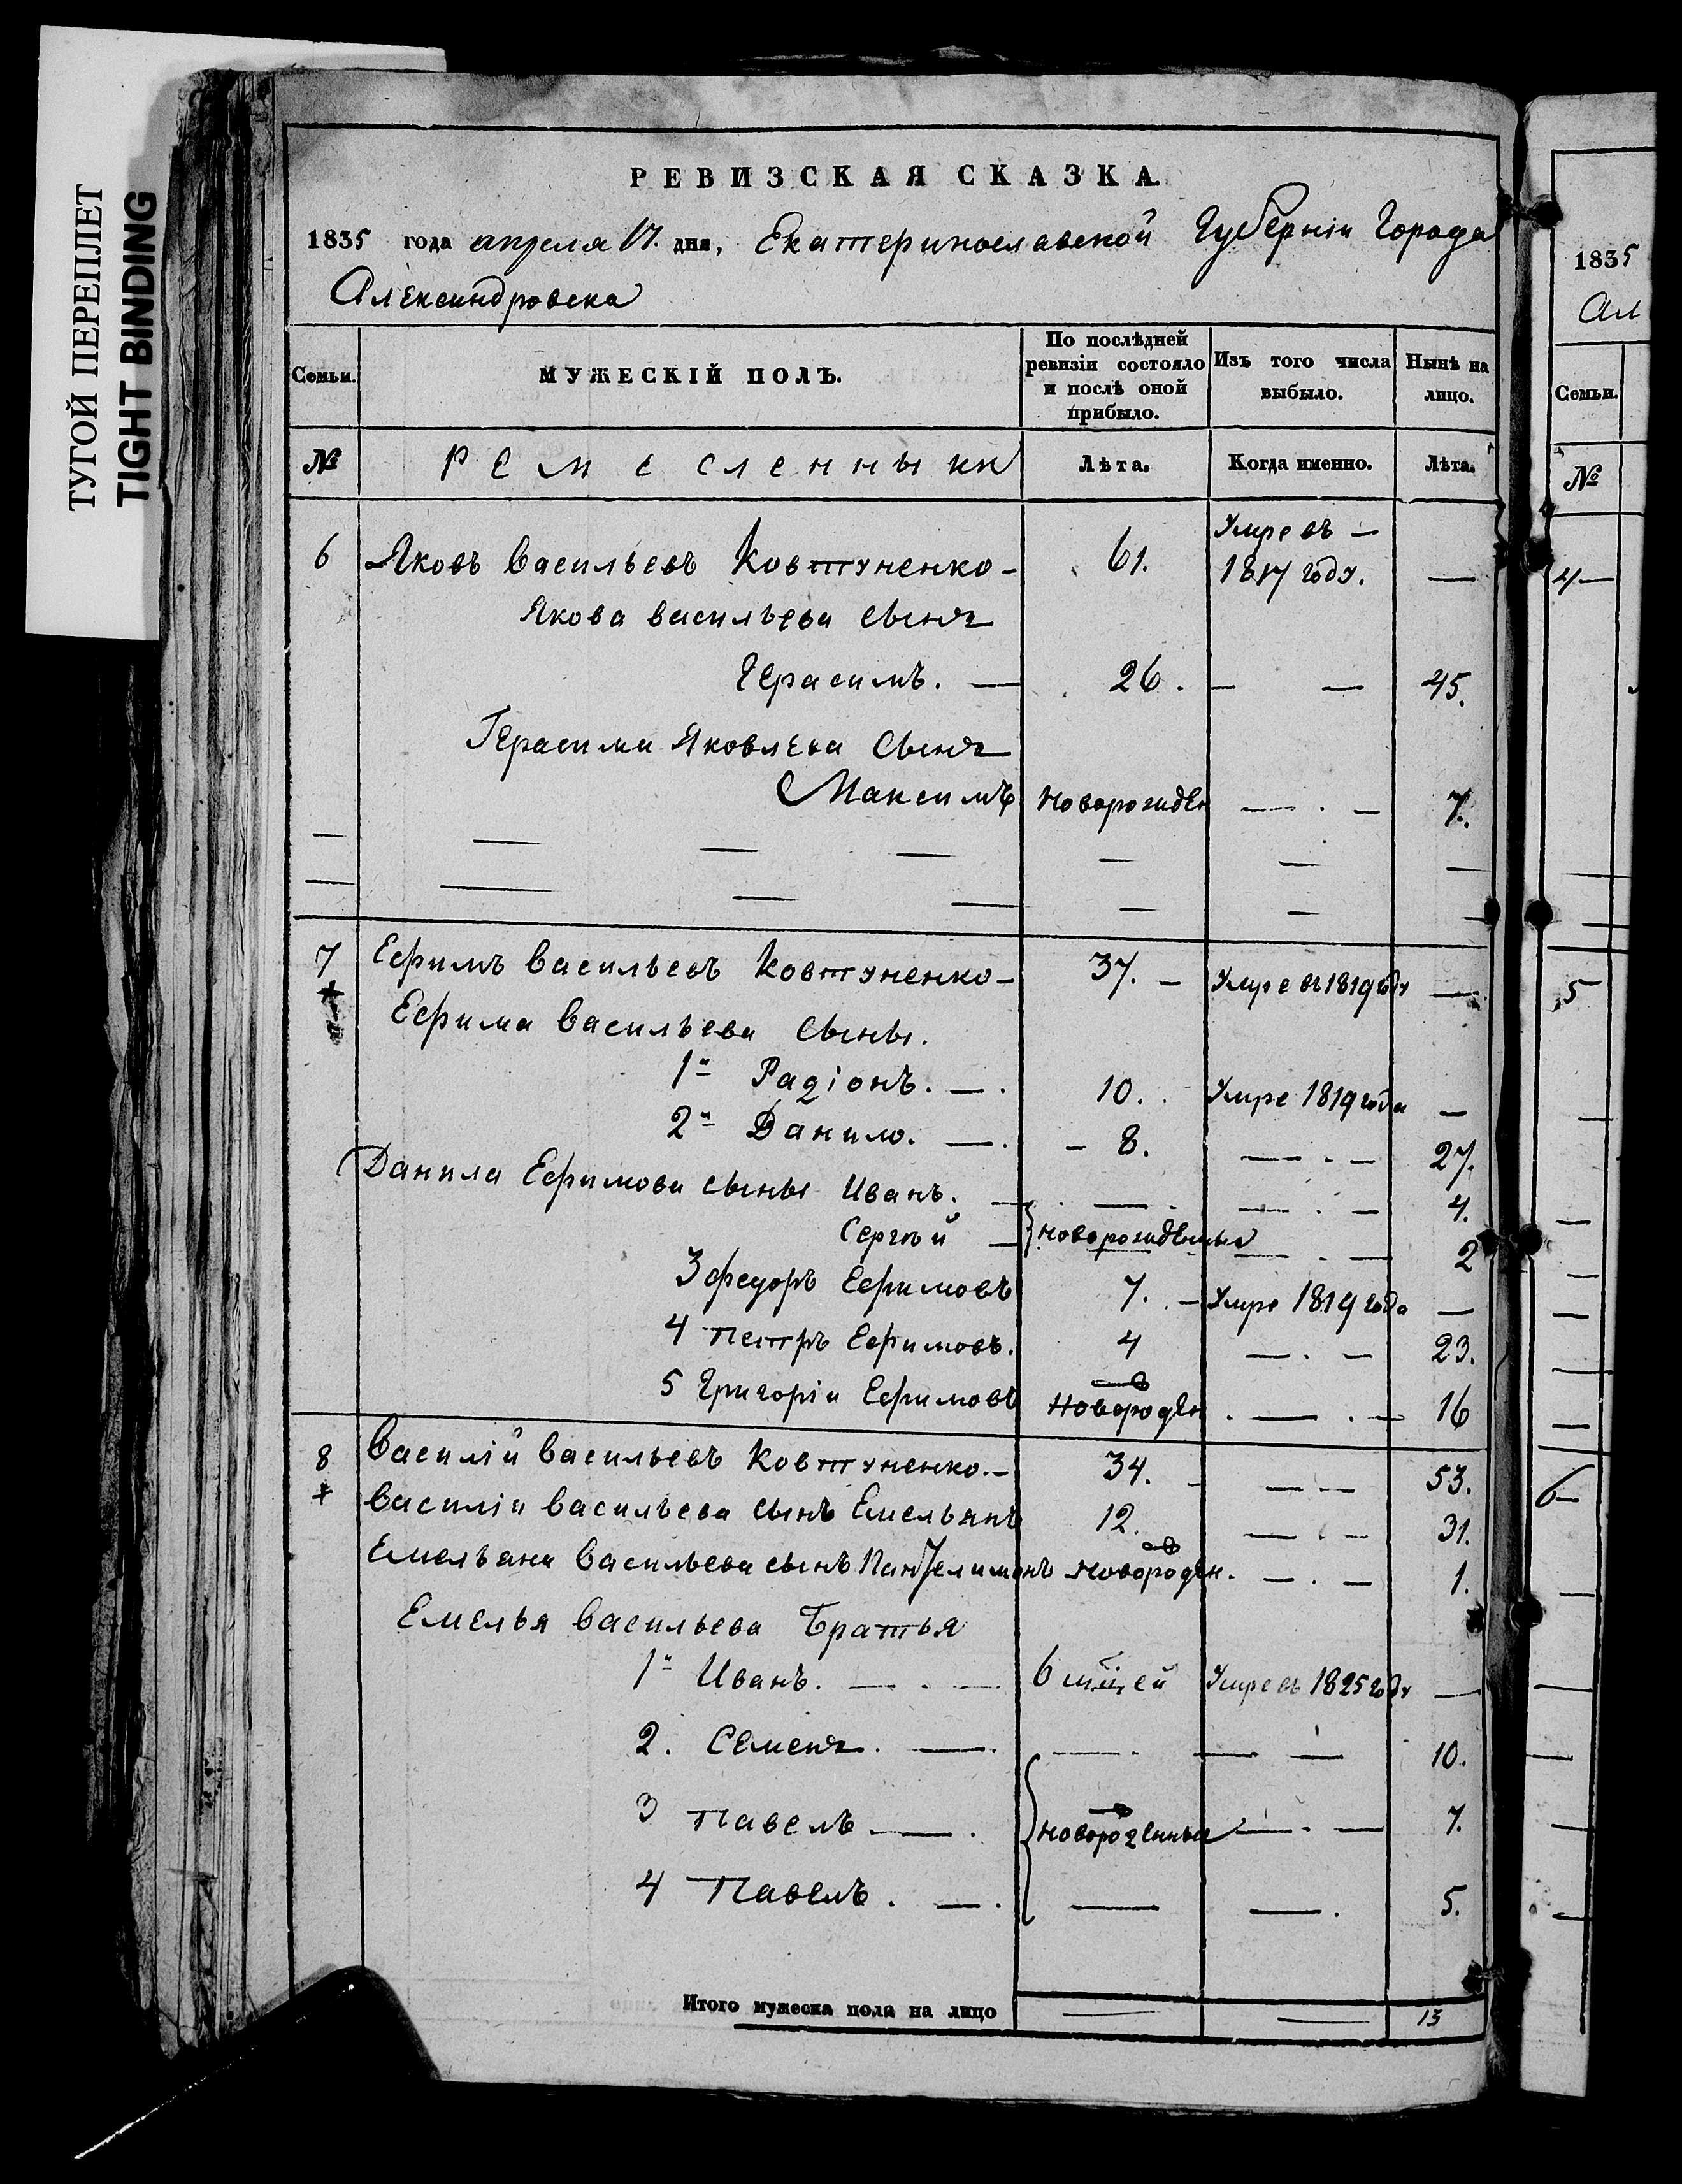 ТУГОЙ ПЕРЕПЛЕТ
TIGHT BINDING
РЕВИЗСКАЯ СКАЗКА.
1835 года апреля 17. дня, Екатеринославской Губерніи Города
Александровска
Семьи. МУЖЕСКІЙ ПОЛЪ. По послѣдней ревизіи состояло и послѣ оной прибыло. Изъ того числа выбыло. Нынѣ на лицо.
№ Ремесленныки Лѣта. Когда именно. Лѣта.
6 Яковъ Васильевъ Ковтуненко - 61. Умре въ — 1817 году. —
Якова васильева сынъ
Герасимъ. — 26. — — 45.
Герасима Яковлева Сынъ
Максимъ Новорожден — . — 7.
7 Ефимъ Васильевъ Ковтуненко - 37. — Умре въ 1819 году —
Ефима Васильева сыны.
1й Радіонъ. — . 10. Умре 1819 года —
2й Данило. — . - 8. — . — 27.
Данила Ефимова сыны Иванъ. — — . — . — 4.
Сергѣй — новорожденныя — . — 2
3 федоръ Ефимовъ 7. — Умре 1819 года —
4 петръ Ефимовъ. 4 — . — 23.
5 Григоріи Ефимовъ Новороден . — . — 16
8 Василій Васильевъ Ковтуненко. — 34. — — 53.
Василіи Васильева сынъ Емельянъ 12. — . — 31.
Емельяна Васильева сынъ Пантелимонъ Новороден. — . — 1.
Емелья Васильева Братья
1й Иванъ. — . — 6 мцей Умре въ 1825 году —
2. Семенъ. — . — . — — 10.
3 Павелъ — . новороденныя — . — 7.
4 Павелъ. — . — — . 5.
Итого мужеска пола на лицо — — 13
1835
Ал
Семьи.
№
4 —
5
6 —